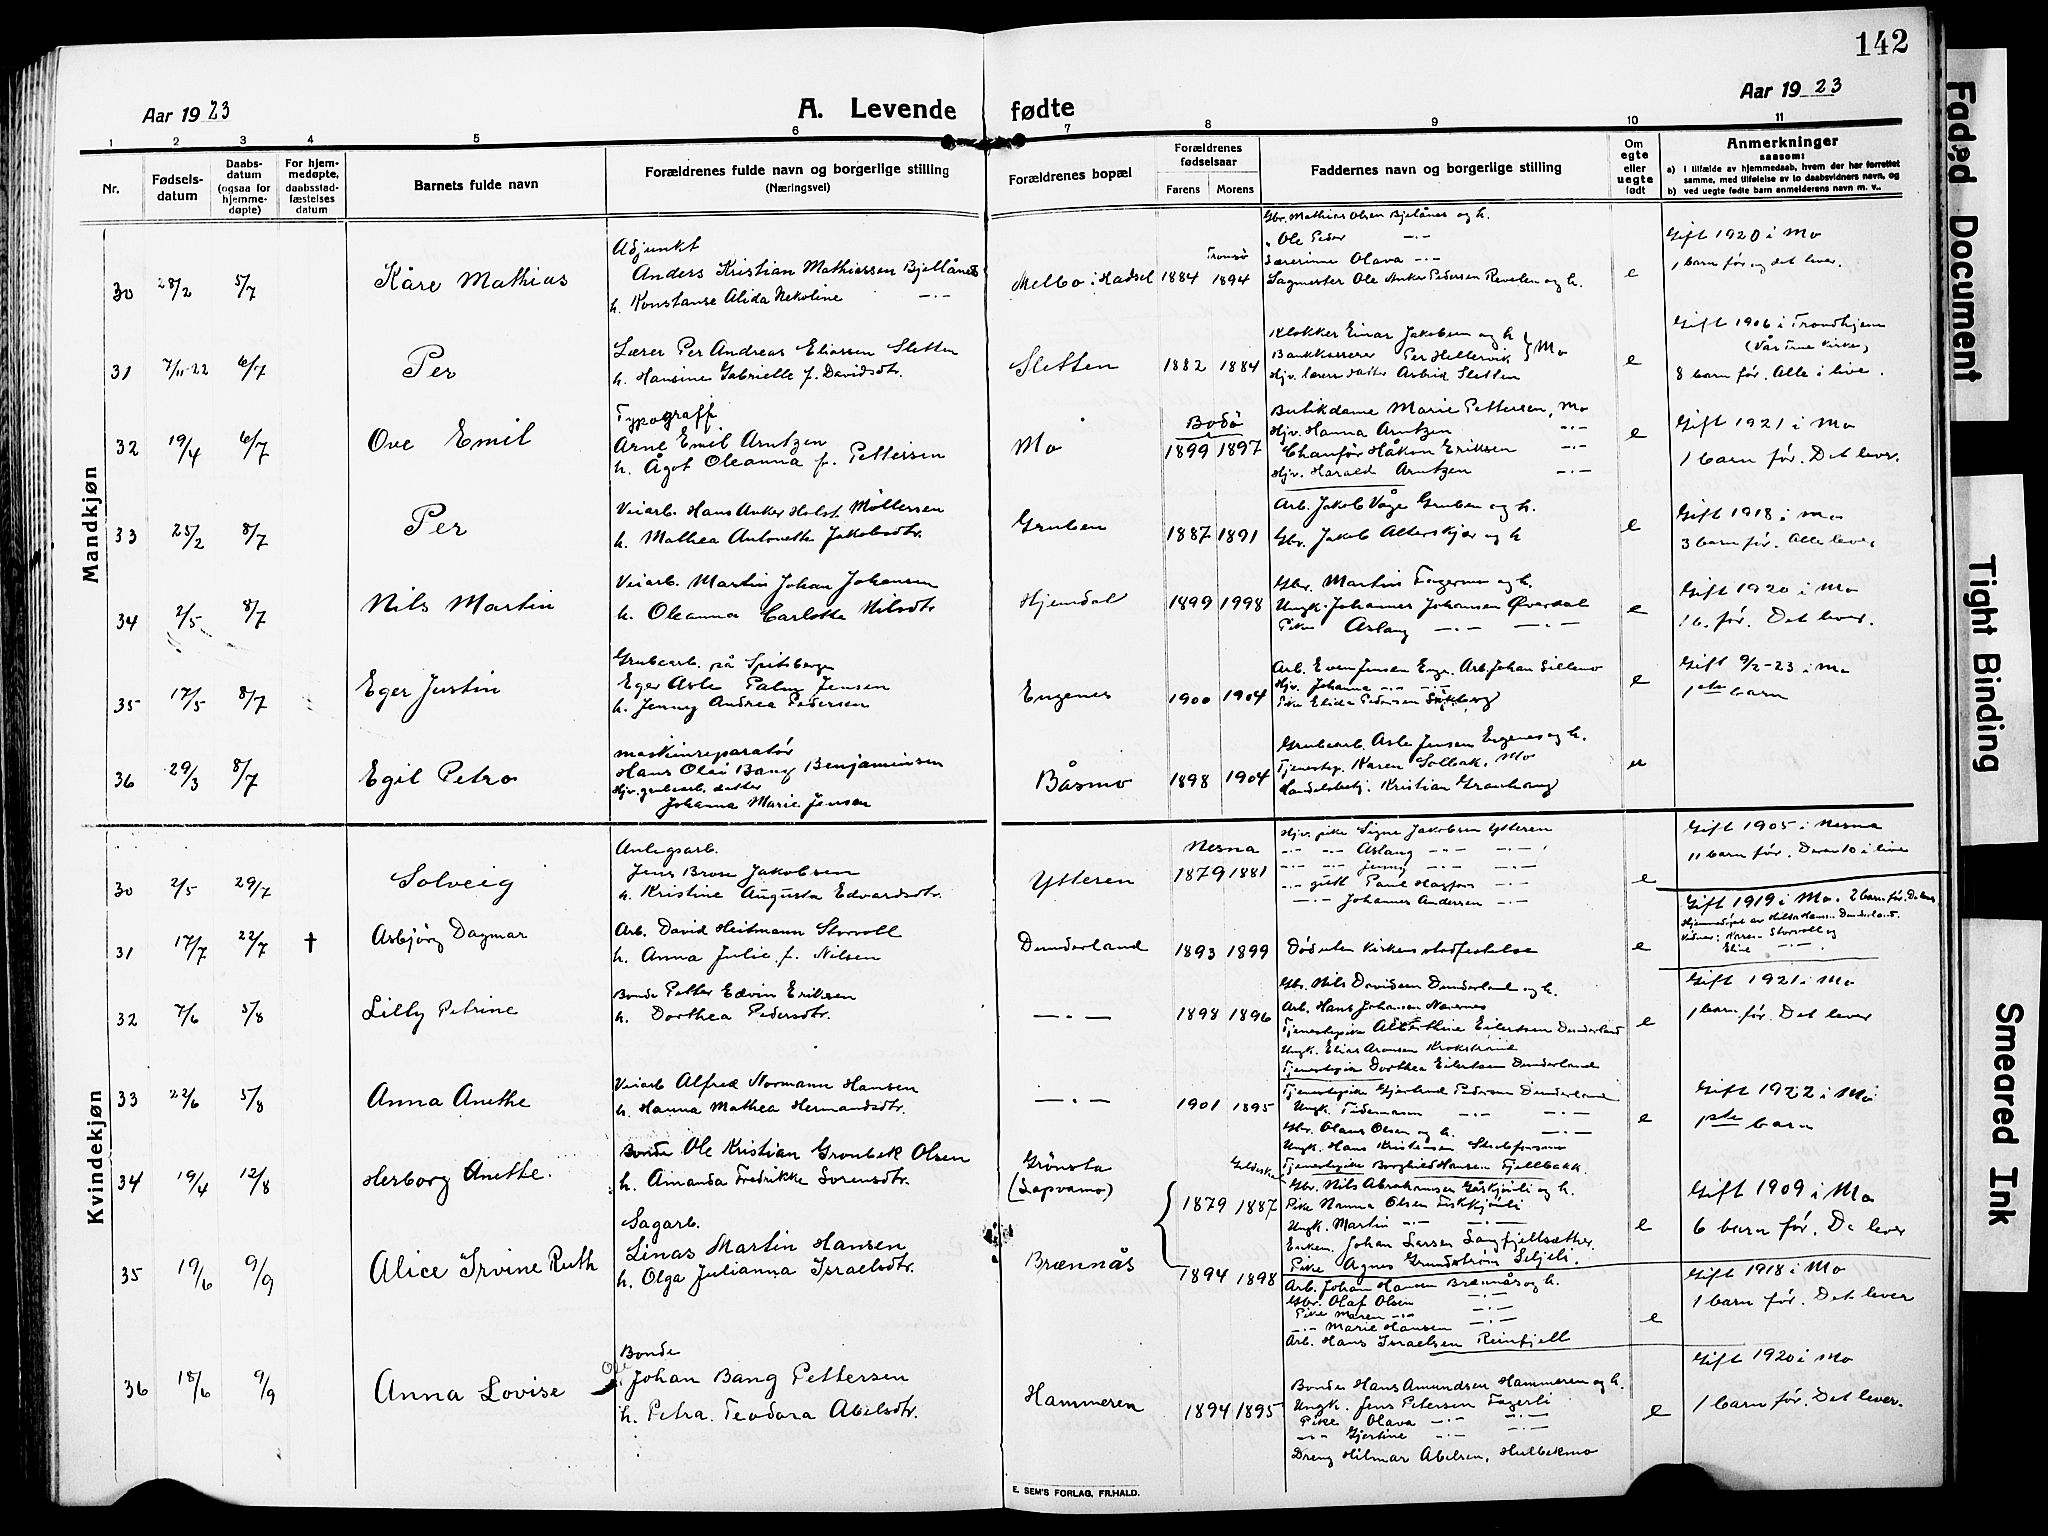 142
Aar 1923
A. Levende fødte
Aar 1923
1 2 3 4 5 6 7 8 9 10 11
Nr.
Fødsels-
datum
Daabs-
datum
(ogsaa for
hjemme-
døpte)
For hjem-
medøpte,
daabsstad-
fæstelses
datum
Barnets fulde navn
Forældrenes fulde navn og borgerlige stilling
(Næringsvei)
Forældrenes bopæl
Forældrenes
fødselsaar
Farens Morens
Faddernes navn og borgerlige stilling
Om
egte
eller
uegte
født
Anmerkninger
saasom:
a) i tilfælde av hjemmedaab, hvem der har forrettet
samme, med tilføielse av to daabsvidners navn, og
b) ved uegte fødte barn anmelderens navn m. v..
Mandkjøn
30 28/2 5/7 Kåre Mathias
Adjunkt
Anders Kristian Mathiassen Bjellånes
h. Konstanse Alida Nekoline —·—
Melbo i Hadsel
Tromsø
1884 1894
Gbr. Mathias Olsen Bjelånes og h.
" Ole Peder —·—
Lærerinne Olava —·—
Sagmester Ole Anker Pedersen Revelen og h.
e
Gift 1920 i Mo
1 barn før og det lever.
31 7/11-22 6/7 Per
Lærer Per Andreas Eliassen Sletten
h. Hansine Gabrielle f. Davidsdtr.
Sletten
1882 1884
Klokker Einar Jakobsen og h
Bankkasserer Per Hellervik } Mo
Hjv. lærers datter Astrid Sletten
e
Gift 1906 i Trondhjem
(Vår Frue Kirke)
8 barn før. Alle i live.
32 19/4 6/7 Ove Emil
Typograff
Arne Emil Arntzen
h. Ågot Oleanna f. Pettersen
Mo
Bodø
1899 1897
Butikdame Marie Pettersen, Mo
Hjv. Hanna Arntzen —·—
Chauffør Håkon Eriksen —·—
Hjv. Harald Arntzen —·—
e
Gift 1921 i Mo
1 barn før. Det lever.
33 25/2 8/7 Per
Veiarb. Hans Anker Holst Møllersen
h. Mathea Antonette Jakobsdtr.
Gruben
1887 1891
Arb. Jakob Våge Gruben og h.
Gbr. Jakob Alterskjær og h
e
Gift 1918 i Mo
3 barn før. Alle lever,
34 2/5 8/7 Nils Martin
Veiarb. Martin Johan Johansen
h. Oleanna Carlotte Nilsdtr
Hjemdal
1899 1998
Gbr. Martin Fagermo og h.
Ungk. Johannes Johansen Øverdal
Pike Aslaug —·— —·—
e
Gift 1920 i Mo
1 b. før. Det lever.
35 17/5 8/7 Eger Justin
Grubearb. på Spitsbergen
Eger Asle Palmy Jensen
h. Jenny Andrea Pedersen
Engenes
1900 1904
Arb. Even Jensen Enge. Arb. Johan Sillemo
Hjv. Johanna —·— —·—
Pike Elida Pedersen
e
Gift 9/2-23 i Mo
1ste barn
36 29/3 8/7 Egil Petro
Maskinreparatør
Hans Olai Bang Benjaminsen
Hjv. grubearb. datter
Johanna Marie Jensen
Båsmo
1898 1904
Grubearb. Asle Jensen Engenes og h.
Tjenestep. Karen Solbak, Mo
Handelsbetj. Kristian Granhaug
u
Kvindekjøn
30 2/5 29/7 Solveig
Anlegsarb.
Jens Brose Jakobsen
h. Kristine Augusta Edvardsdtr.
Ytteren
Nesna
1879 1881
Hjv. pike Signe Jakobsen Ytteren
—·— —·— Aslaug —·— —·—
—·— —·— Jenny —·— —·—
—·— gutt Paul —·—
—·— Johannes Andersen —·—
e
Gift 1905 i Nesna
11 barn før. Derav 10 i live
31 17/7 22/7 † Asbjørg Dagmar
Arb. David Heitmann Storvoll
h. Anna Julie f. Nilsen
Dunderland
1893 1899
Død uten kirkens stadfestelse
e
Gift 1919 i Mo. 2 barn før. De lever
Hjemmedøpt av Hilda Hansen Dunderland.
Vidner: Karen Storvoll og
Eline —·—
32 7/6 5/8 Lilly Petrine
Bonde Petter Edvin Eriksen
h. Dorthea Pedersdtr.
—·—
1898 1896
Gbr. Nils Davidsen Dunderland og h.
Arb. Hans Johansen Nævernes
Tjenestepike Albertine Eilertsen Dunderland
Ungk. Elias Aronsen Krokstrand
Tjenestepike Dorthea Eilertsen Dunderland
e
Gift 1921 i Mo
1 barn før. Det lever
33 22/6 5/8 Anna Anethe
Veiarb Alfred Normann Hansen
h. Hanna Mathea Hermandsdtr.
—·—
1901 1895
Tjenestepike Gjerlaug Pedersen Dunderland
Ungk. Tidemann —·— —·—
Gbr. Olaus Olsen og h. —·—
Ungk. Hans Kristensen
Tjenestepike Borghild Hansen Fjellbakk.
e
Gift 1922 i Mo
1ste barn
34 19/4 12/8 Herborg Anethe.
Bonde Ole Kristian Grønbek Olsen
h. Amanda Fredrikke Sørensdtr.
Grønsta
(Lapvamo)
Gildeskål
1879 1887
Gbr. Nils Abrahamsen Gåskjønli og h.
Pike Nanna Olsen Fiskkjønli
Ungk. Martin —·— —·—
Enkem. Johan Larsen Langfjellsæther.
Pike Agnes Grundstrøm Seljeli.
e
Gift 1909 i Mo
6 barn før. De lever
35 19/6 9/9 Alice Irvine Ruth
Sagarb.
Linas Martin Hansen
h. Olga Julianna Israelsdtr.
Brænnås
1894 1898
Arb. Johan Hansen Brænnås og h.
Gbr. Olaf Olsen —·—
Pike Maren —·— —·—
—·— Marie Hansen —·—
Arb. Hans Israelsen Reinfjell
e
Gift 1918 i Mo
1 barn før. Det lever
36 18/6 9/9 Anna Lovise
Bonde
Ole
Johan Bang Pettersen
h. Petra Teodora Abelsdtr.
Hammeren
1894 1895
Bonde Hans Amundsen Hammeren og h.
Ungk. Jens Petersen Fagerli
Pike Olava —·— —·—
—·— Gjertine —·— —·—
Dreng Hilmar Abelsen, Hulbekmo
e
Gift 1920 i Mo
1 barn før. Det lever.
E. SEM'S FORLAG, FR.HALD.
Faded Document
Tight Binding
Smeared Ink